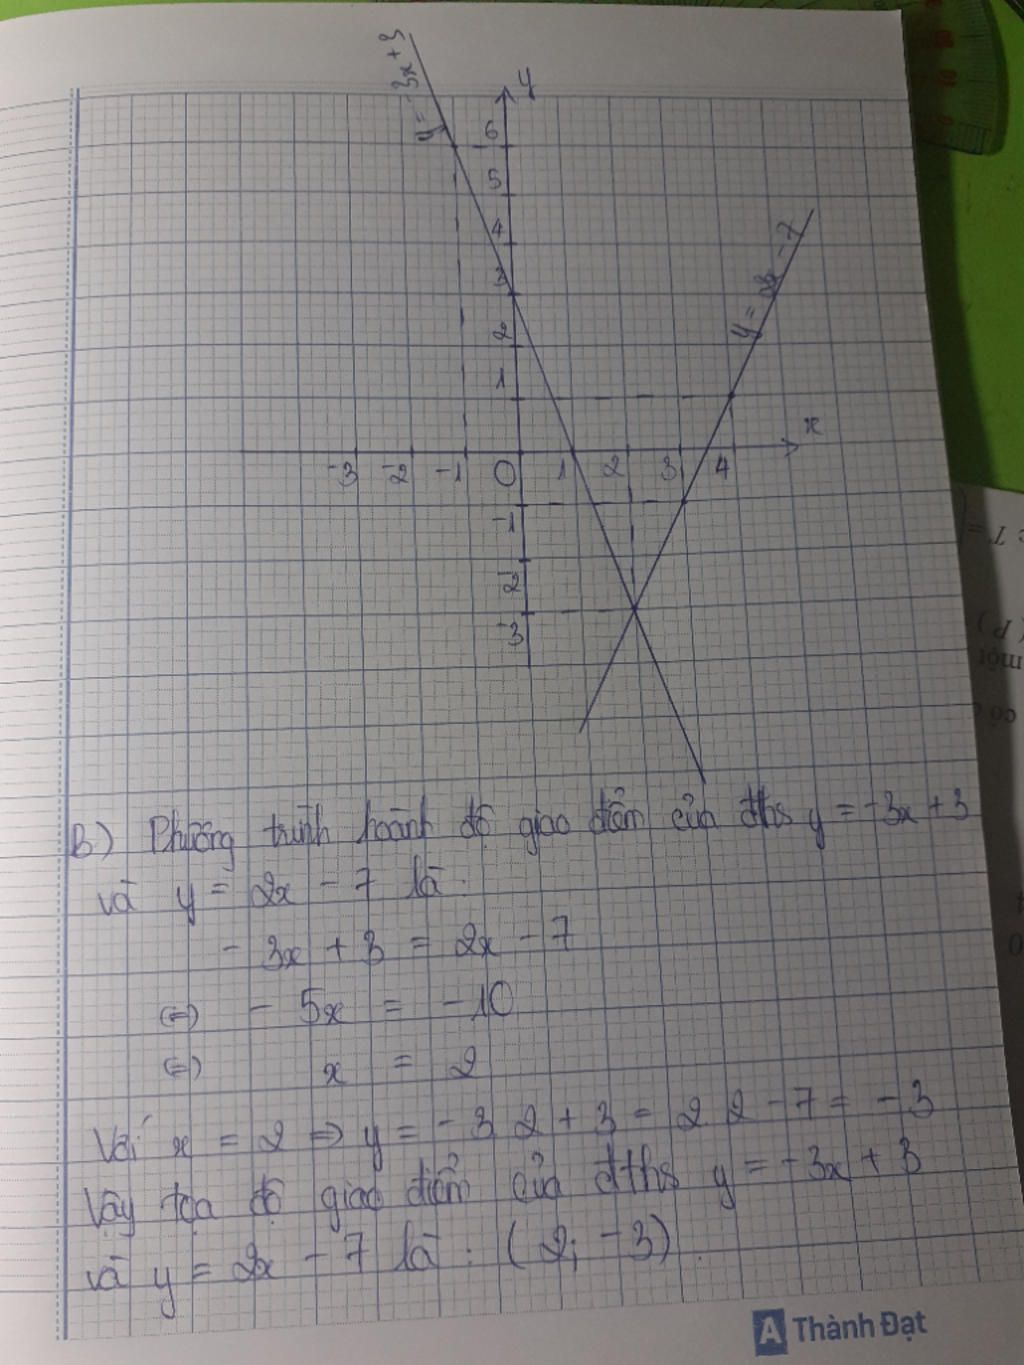 y = -3x + 3
y
6
5
4
3
2
1
y = 2x - 7
x
-3 -2 -1 0 1 2 3 4
-1
-2
-3
B) Phương trình hoành độ giao điểm của đths y = -3x + 3
và y = 2x - 7 là:
- 3x + 3 = 2x - 7
(=) - 5x = -10
(=) x = 2
Với x = 2 => y = -3.2 + 3 = 2.2 - 7 = -3
Vậy tọa độ giao điểm của đths y = -3x + 3
và y = 2x - 7 là: (2; -3).
A Thành Đạt